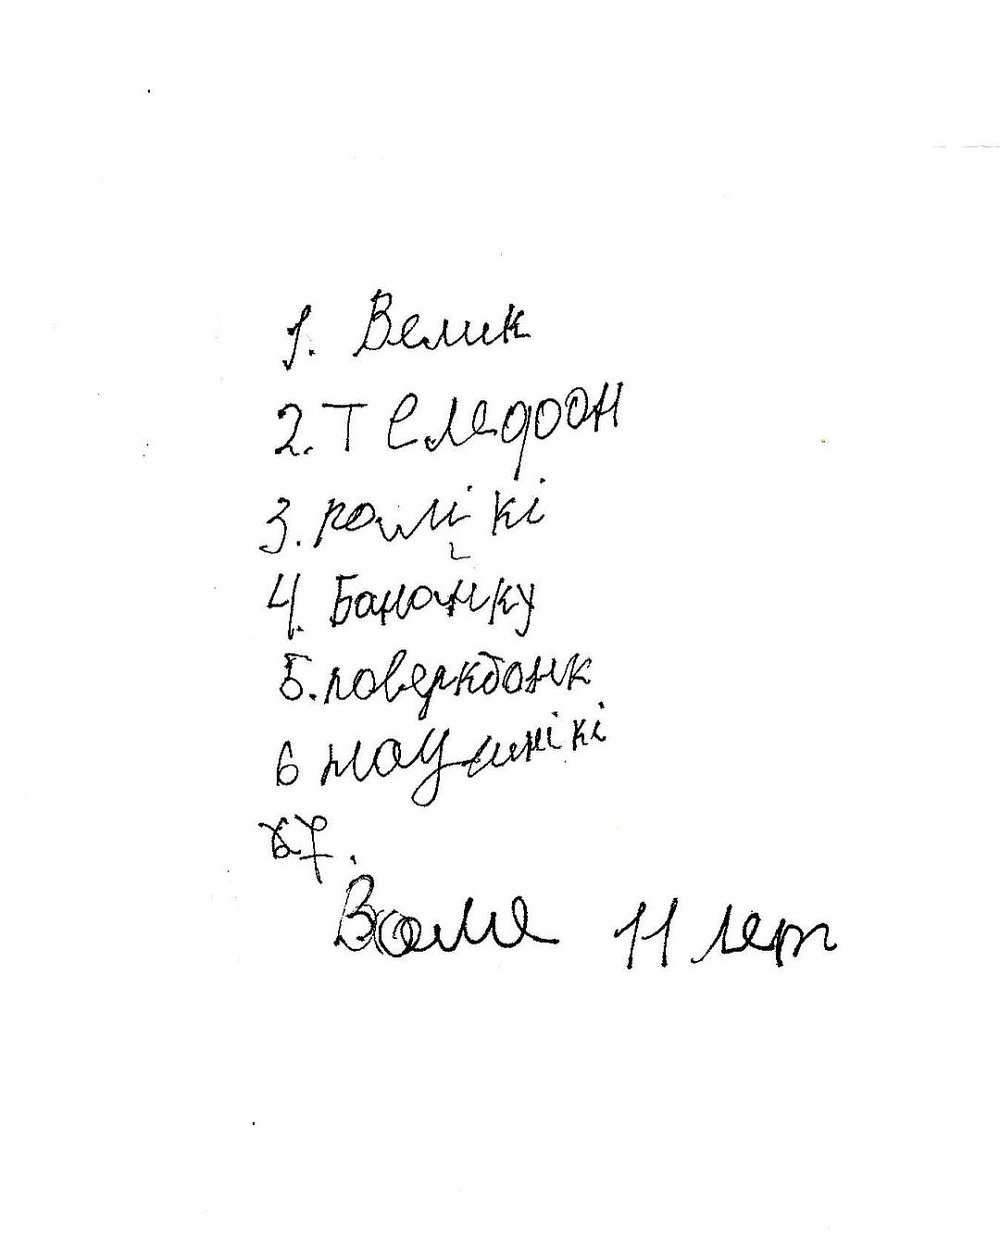 1. Велик
2. Телефон
3. ролікі
4. Бананку
5.повербанк
6 наушнікі
7.
Ваме 11 лет